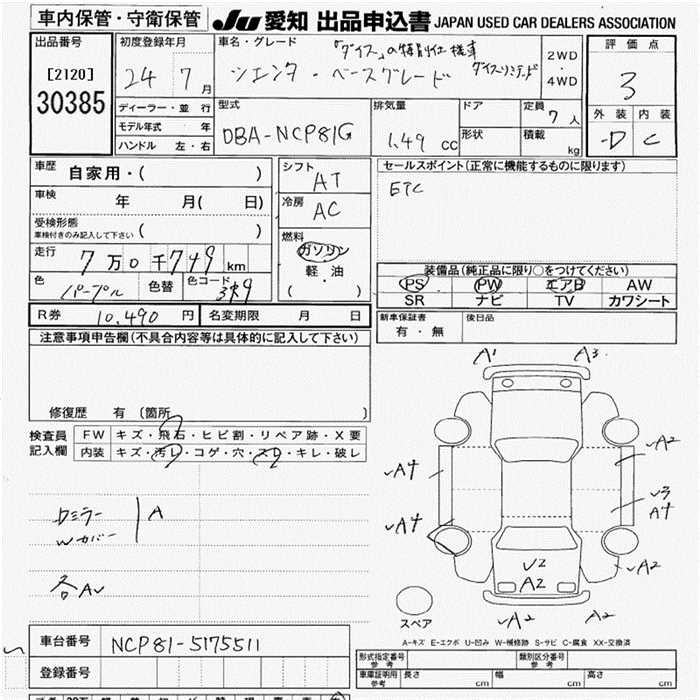 車内保管・守衛保管 JU 愛知 出品申込書 JAPAN USED CAR DEALERS ASSOCIATION
出品番号 初度登録年月 車名・グレード 「ダイス」の特別仕様車 2WD ・ 4WD 評価点
[2120] 24 7 月 シエンタ・ベースグレード ダイスリミテッド 3
30385 ディーラー・並 行 型式 排気量 ドア 定員 7 人 外装 内装
モデル年式 年 DBA-NCP81G 1.49 cc 形状 積載 kg D C
ハンドル 左・右
車歴 自家用・( ) シフト AT セールスポイント(正常に機能するものに限ります)
車検 年 月( 日) 冷房 AC ETC
受検形態 ( )
車検付きのみ記入して下さい
走行 7 万 0 千 749 km 燃料 ガソリン
軽・油
( )
色 パープル 色替 色コード 3R9
装備品(純正品に限り○をつけてください)
PS PW エアB AW
SR ナビ TV カワシート
R券 10,490 円 名変期限 月 日 新車保証書 有・無 後日品
注意事項申告欄(不具合内容等は具体的に記入して下さい)
修復歴 有 (箇所 )
検査員 FW キズ・飛石・ヒビ割・リペア跡・X要
記入欄 内装 キズ・汚レ・コゲ・穴・スレ・キレ・破レ
A1 A3
A4 A2
A4 3
A4
Dミラー A
Wカバー
U2 A2
A2
各AU
スペア A2 A2
A-キズ E-エクボ U-凹み W-補修跡 S-サビ C-腐食 XX-交換済
車台番号 NCP81-5175511
登録番号
形式指定番号 参考 類別区分番号 参考
車庫証明用 参考 長さ cm 幅 cm 高さ cm